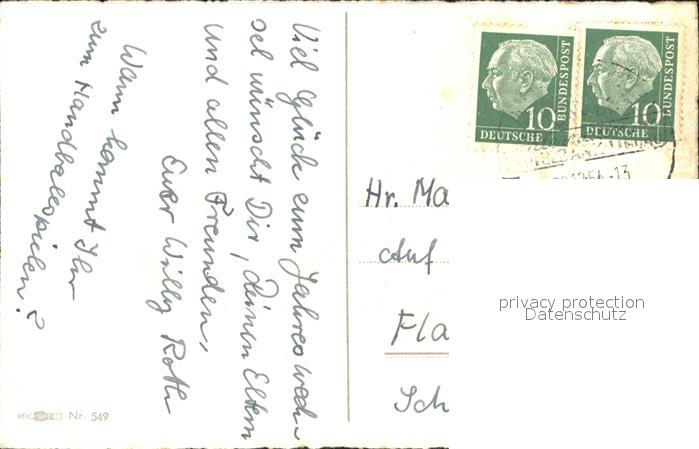 Viel Glück zum Jahreswech-
sel wünscht Dir, Deinen Eltern
und allen Freunden,
Euer Willy Roth
Wann kommt Ihr
zum Handballspielen?
Nr. 549
10
BUNDESPOST
DEUTSCHE
10
BUNDESPOST
DEUTSCHE
Hr. Ma
Auf
Fla
Sch
privacy protection
Datenschutz